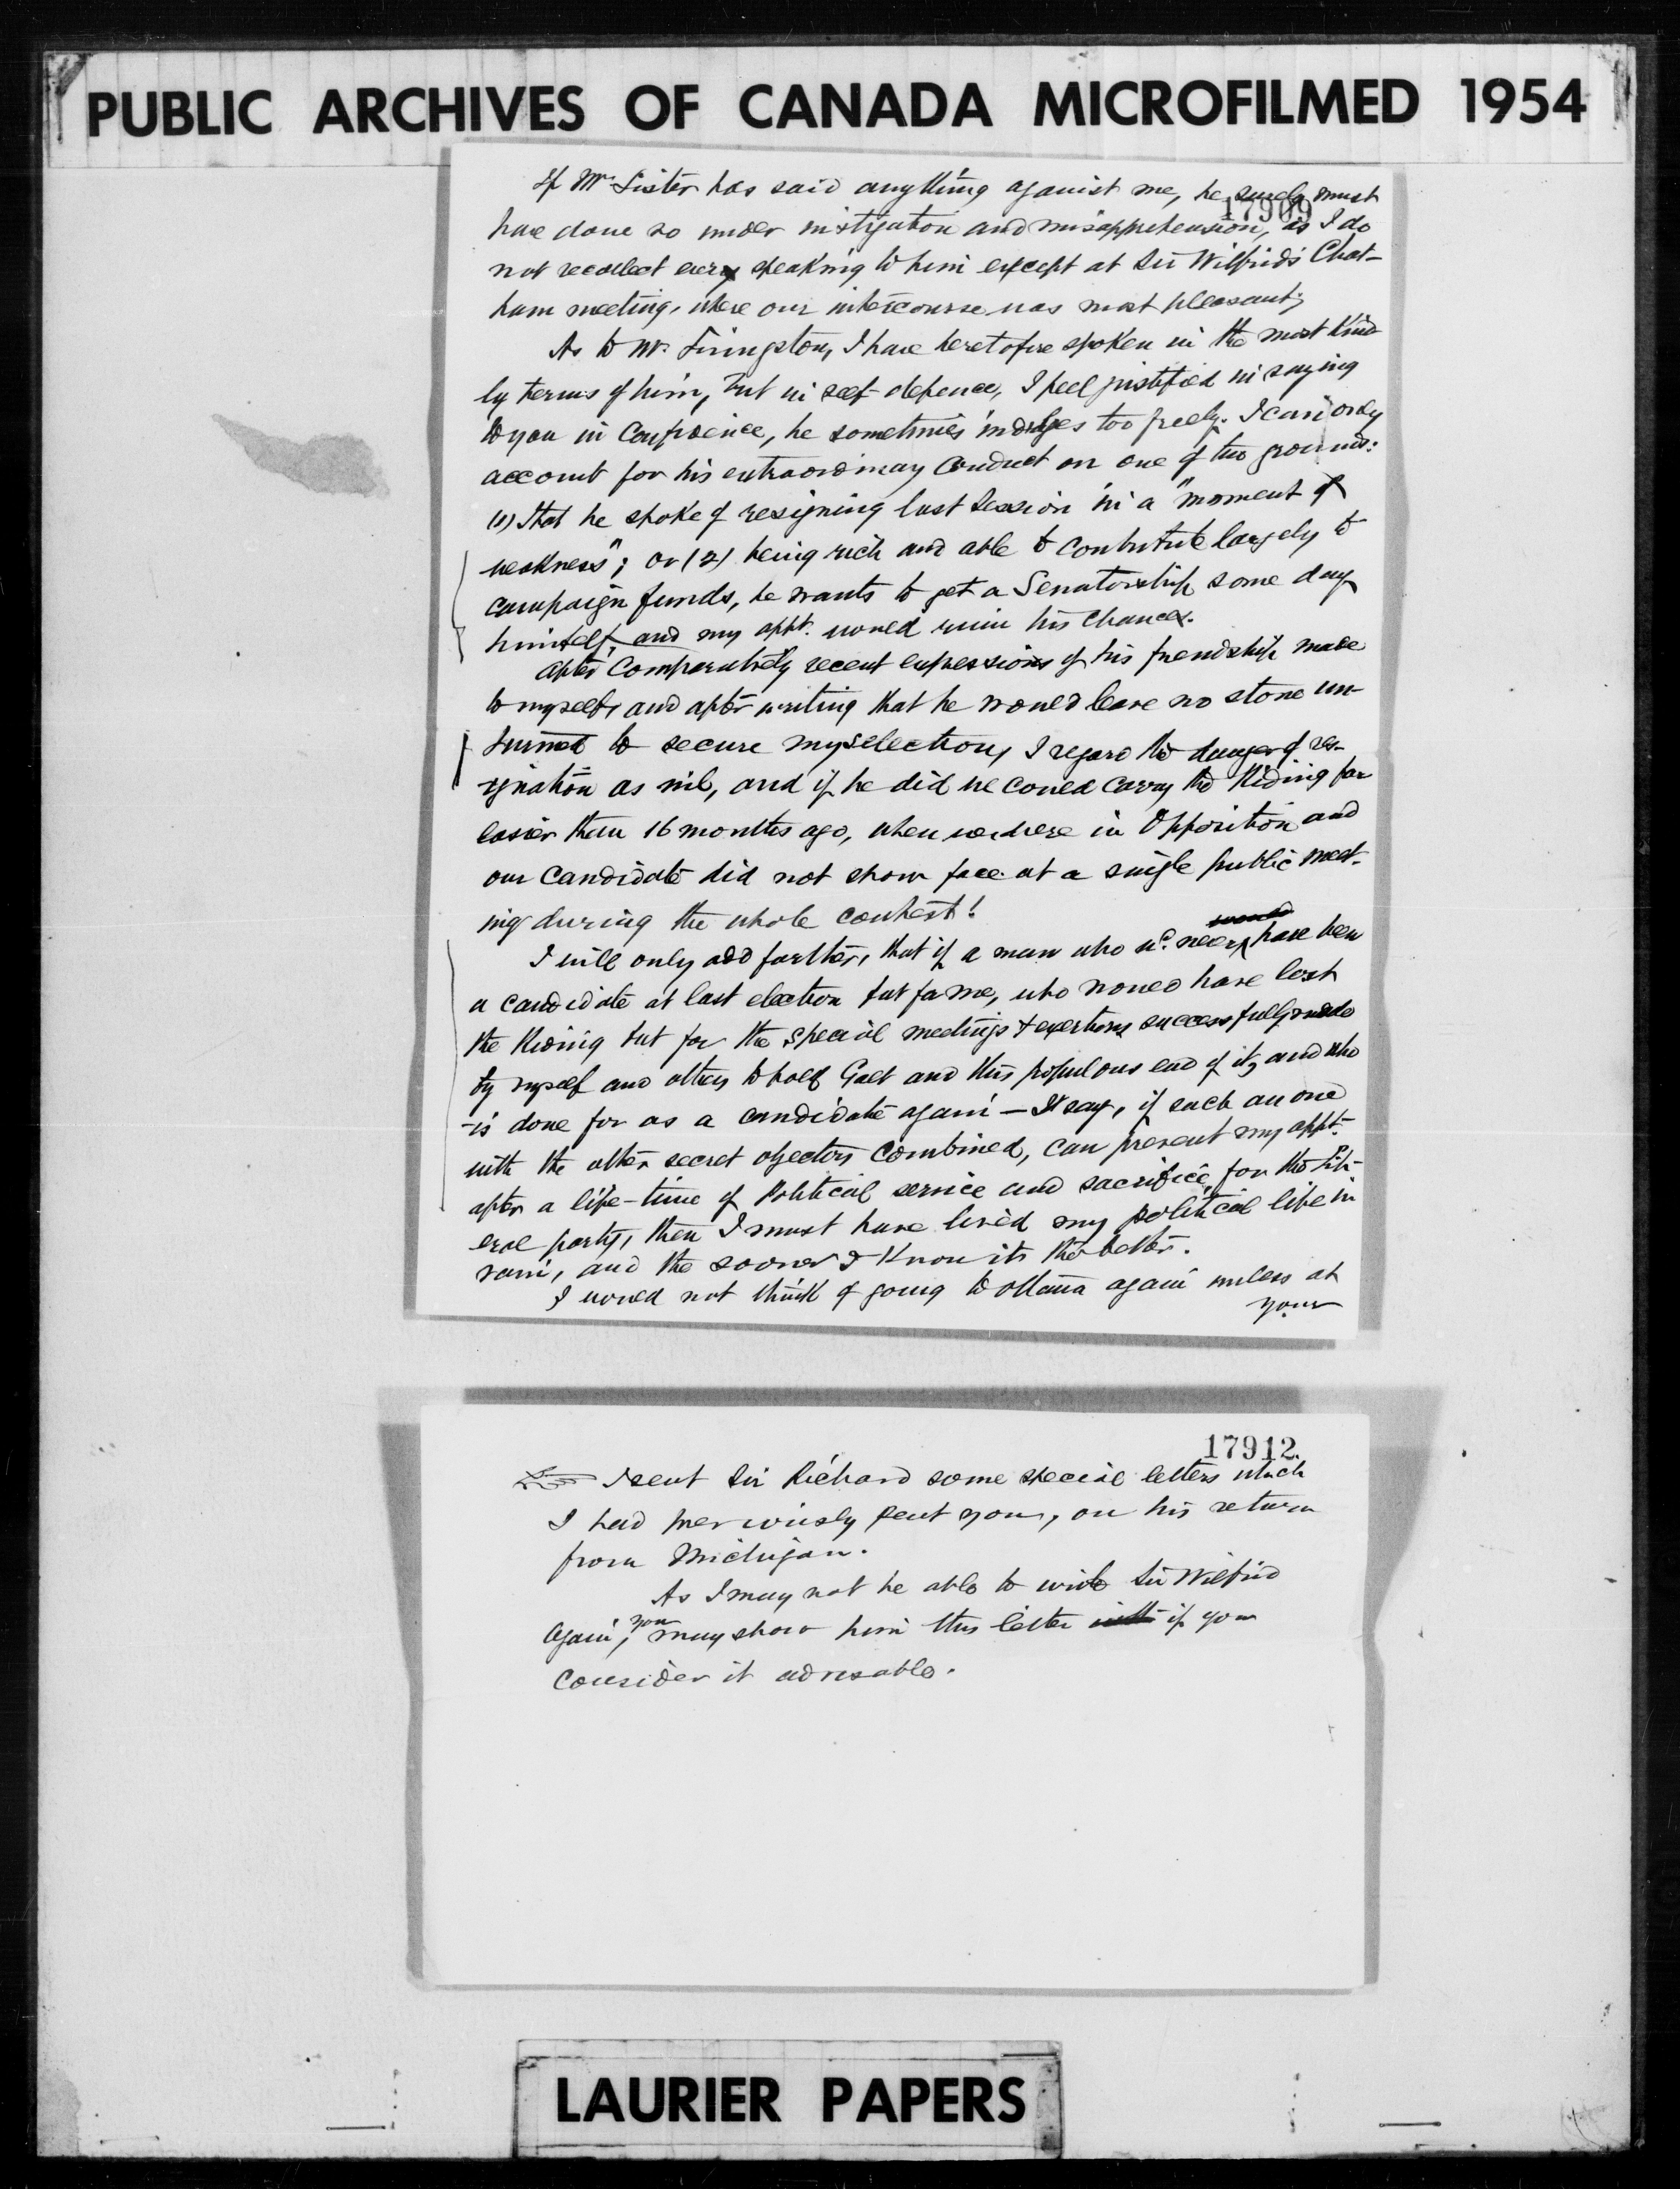 PUBLIC ARCHIVES OF CANADA MICROFILMED 1954
17909
If Mr. Lister has said anything against me, he surely must
have done so under instigation and misapprehension, as I do
not recollect ever speaking to him except at Sir Wilfrid's Chat-
ham meeting, where our intercourse was most pleasant.
As to Mr. Livingston, I have heretofore spoken in the most kind-
ly terms of him, but in self-defence, I feel justified in saying
to you in Confidence, he sometimes indulges too freely. I can only
account for his extraordinary Conduct on one of two grounds:
(1) That he spoke of resigning last Session in a "moment of
weakness"; or (2) being rich and able to Contribute largely to
campaign funds, he wants to get a Senatorship some day
himself, and my appt. would ruin his Chances.
After Comparatively recent expressions of his friendship made
to myself, and after writing that he would leave no stone un-
turned to secure my selection, I regard the danger of res-
ignation as nil, and if he did we could carry the Riding far
easier than 16 months ago, when we were in Opposition and
our Candidate did not show face at a single public meet-
ing during the whole contest!
I will only add further, that if a man who wd. never would have been
a candidate at last election but for me, who would have lost
the Riding but for the special meetings & exertions successfully made
by myself and others to hold Galt and this populous end of it, and who
is done for as a candidate again — I say, if such an one
with the other secret objectors Combined, can prevent my appt.
after a life-time of Political service and sacrifice for the Lib-
eral party, then I must have lived my political life in
vain, and the sooner I Know it, the better.
I would not think of going to Ottawa again unless at
your
17912.
I sent Sir Richard some special letters which
I had previously sent you, on his return
from Michigan.
As I may not be able to write Sir Wilfrid
again, you may show him this letter if you
Consider it advisable.
LAURIER PAPERS